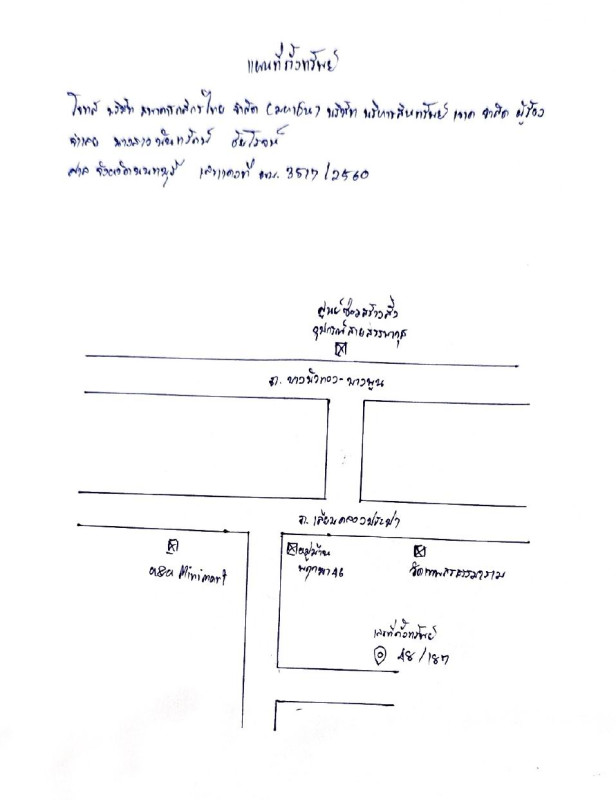 แผนที่ตั้งทรัพย์
โจทก์ บริษัท ธนาคารกสิกรไทย จำกัด (มหาชน) บริษัท บริหารสินทรัพย์ เจเค จำกัด ผู้ร้อง
จำเลย นางสาว
ศาล จังหวัดนนทบุรี เลขคดีที่ ผบ. 3517/2560
ศูนย์ซ่อมสร้างสิ่ง
อุปกรณ์สายสรรพาวุธ
ถ. บางบัวทอง-บางพูน
ถ. เลียบคลองประปา
Minimart
หมู่บ้าน
พฤกษา 46
วัด
เลขที่ตั้งทรัพย์
48/187